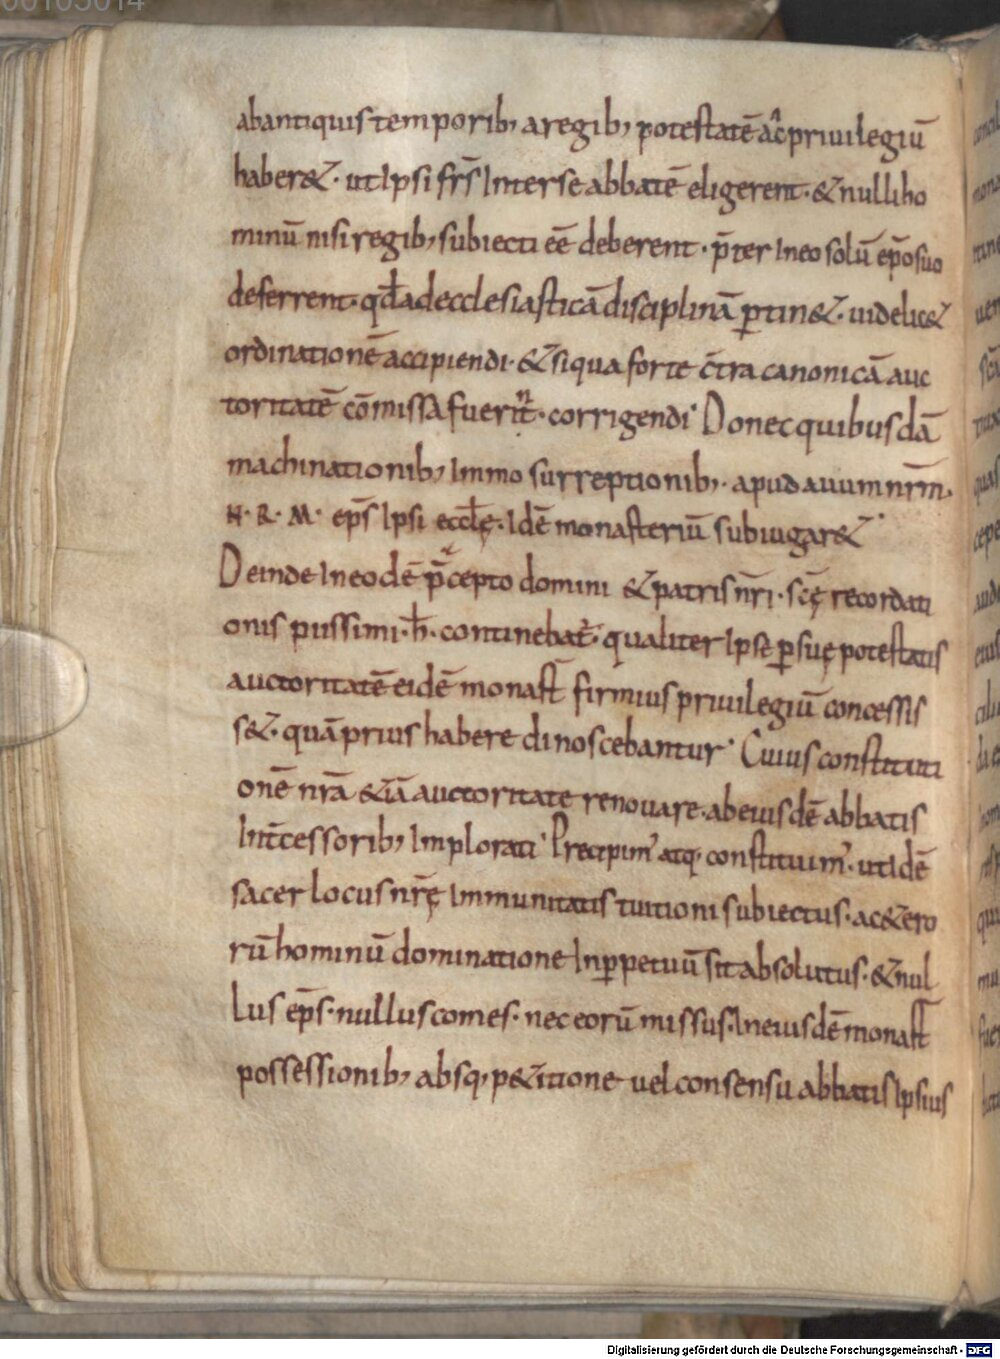 00105014
ab antiquis temporib; a regib; potestatē ac priuilegiū
haber&. ut ipsi frs̄ inter se abbatē eligerent. & nulli ho
minū nisi regib; subiecti eē deberent. p̄ter in eo solū ep̄o suo
deferrent. qđ ad ecclesiasticā disciplinā ꝑtin&. uidelic&
ordinationē accipiendi. & si qua forte c̄tra canonicā auc
toritatē cōmissa fuerint. corrigendi. Donec quibusdā
machinationib; immo surreptionib;. apud auum nr̄m.
H. R. M. ep̄s ipsi eccl̄ę. idē monasteriū subiugar&.
Deinde in eodē p̄cepto domini & patris nr̄i. scę̄ recordati
onis piissimi. h̄. continebat̄. qualiter ipse ꝑ suę potestatis
auctoritatē eidē monast̄ firmius priuilegiū concessis
s&. quā prius habere dinoscebantur. Cuius constituti
onē nr̄a &iā auctoritate renouare. ab eiusdē abbatis
int̄cessorib; implorati. Precipim᾽ atq; constituim᾽. ut idē
sacer locus nr̄ę immunitatis tuitioni subiectus. ac &ero
rū hominū dominatione in ꝑpetuū sit absolutus. & nul
lus ep̄s. nullus comes. nec eorū missus. in eiusdē monast̄
possessionib; absq; p&itione uel consensu abbatis ipsius
Digitalisierung gefördert durch die Deutsche Forschungsgemeinschaft - DFG